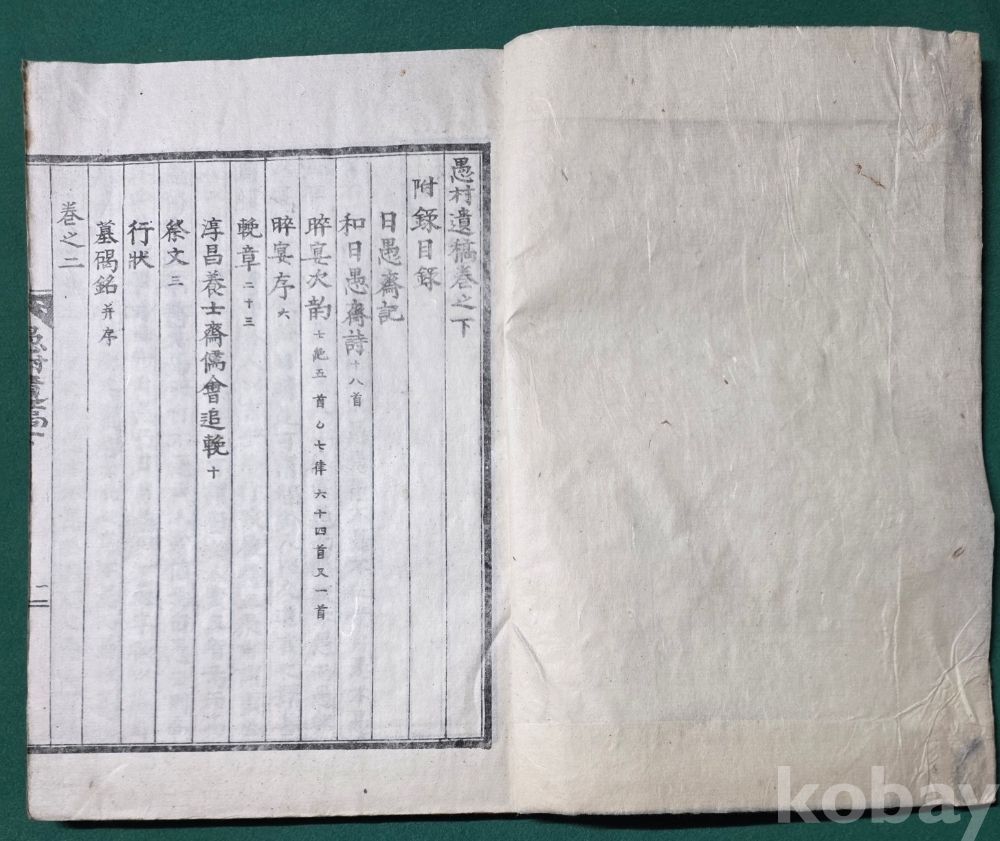 愚村遺稿卷之下
附錄目錄
日愚齋記
和日愚齋詩十八首
晬宴次韵七絶五首七律六十四首又一首
晬宴序六
輓章二十三
淳昌養士齋儒會追輓十
祭文三
行狀
墓碣銘并序
卷之二
愚村遺稿下
二
kobay